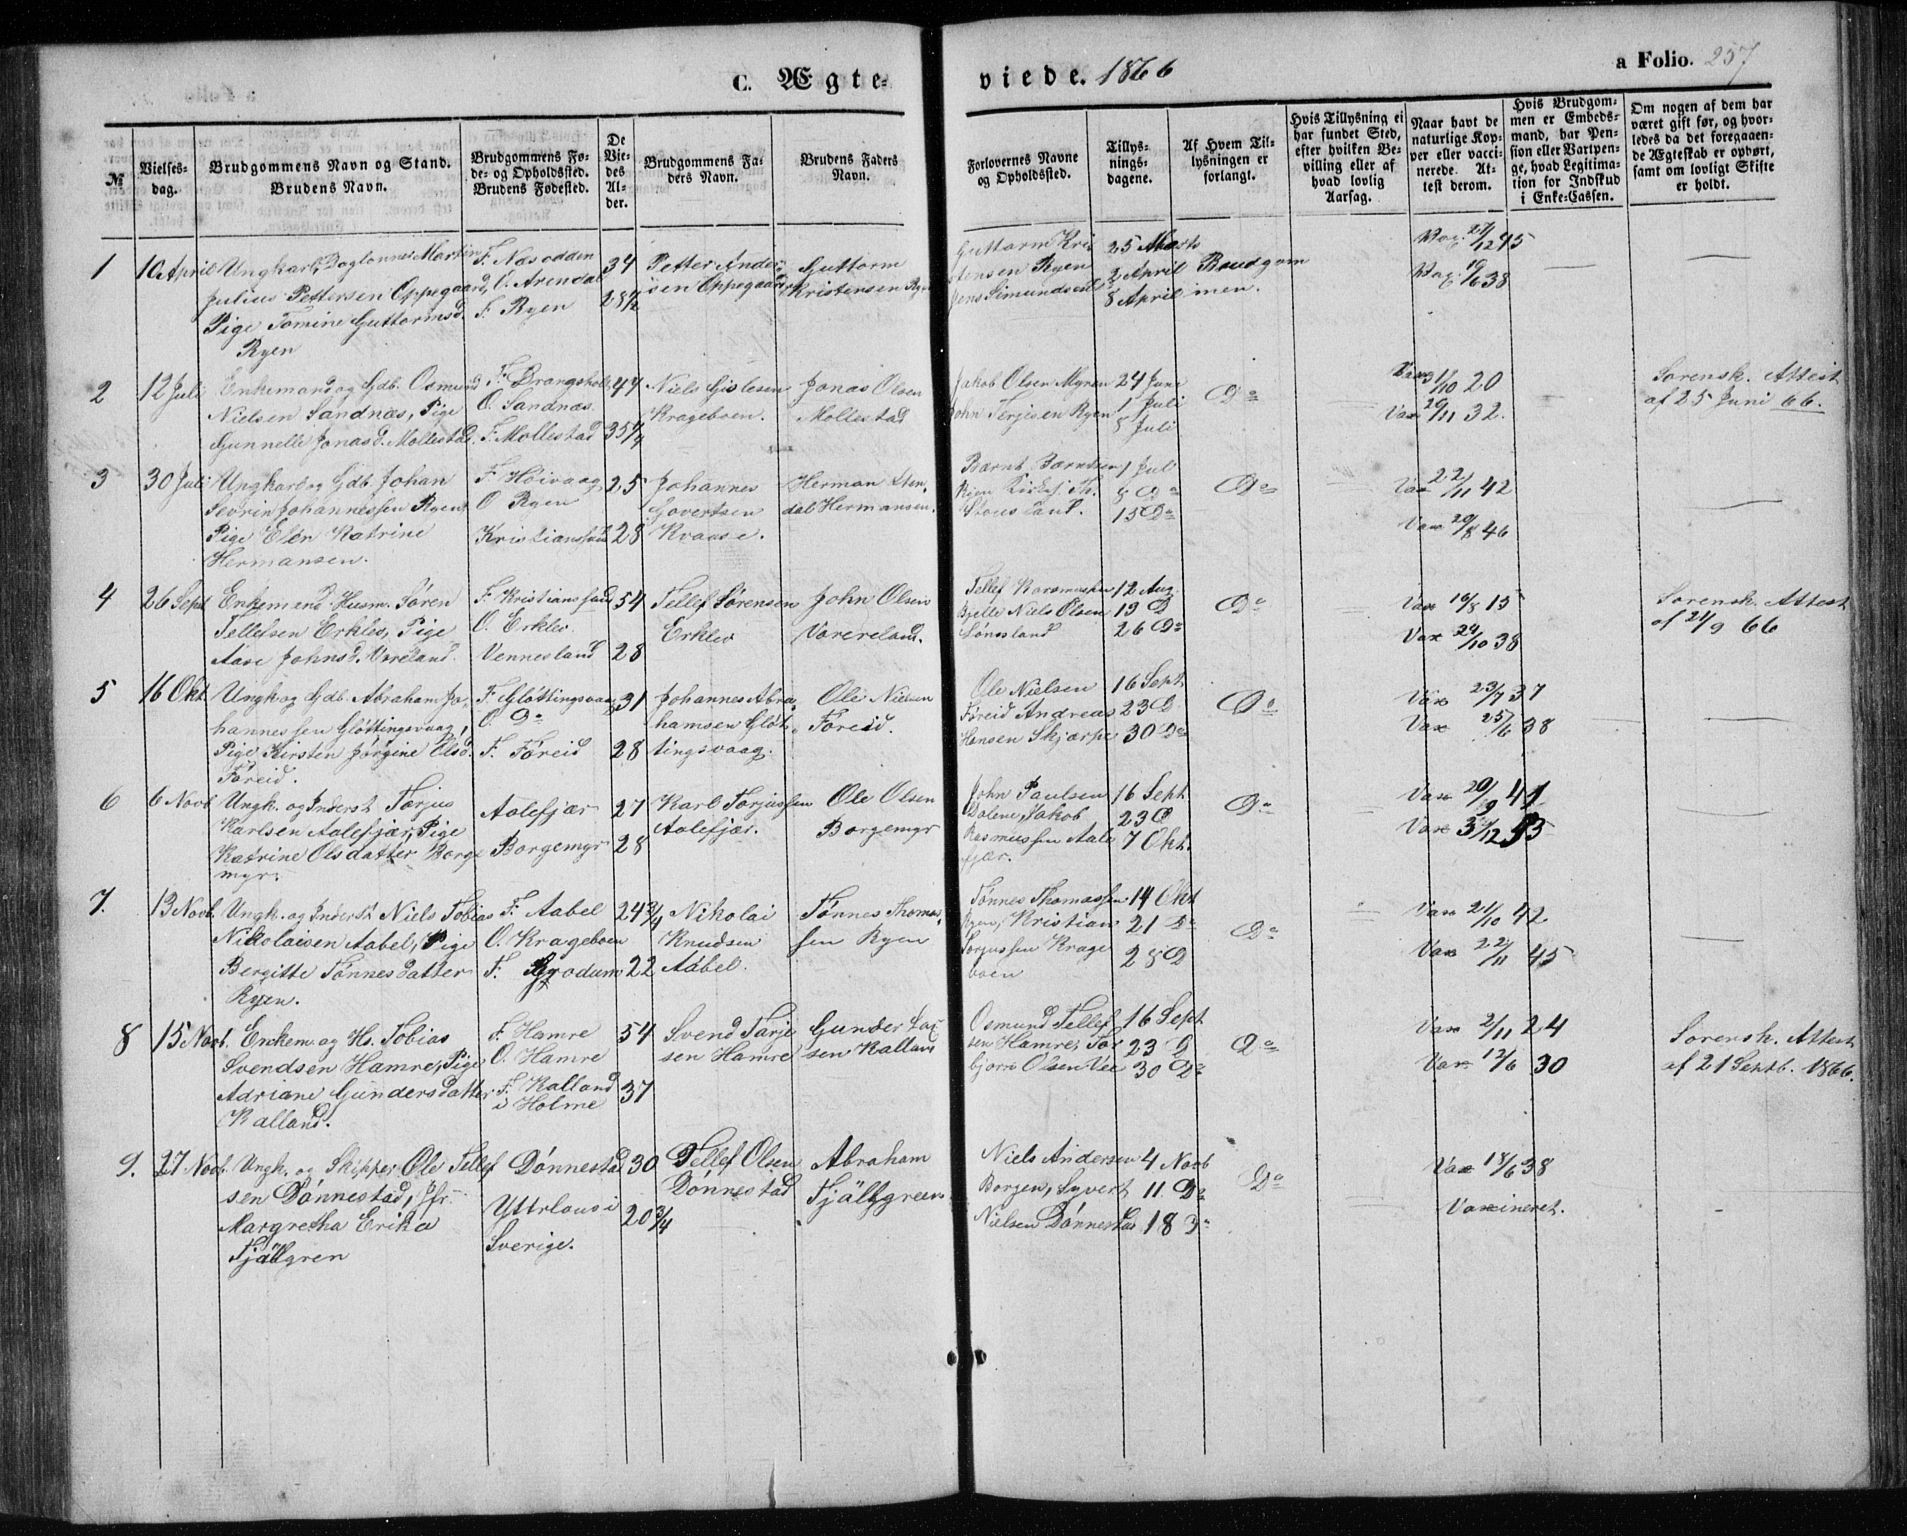 C. Ægte-
viede. 1866
a Folio. 257
№
Vielses-
dag.
Brudgommens Navn og Stand.
Brudens Navn.
Brudgommens Fø-
de- og Opholdssted.
Brudens Fødested.
De
Vie-
des
Al-
der.
Brudgommens Fa-
ders Navn.
Brudens Faders
Navn.
Forlovernes Navne
og Opholdssted.
Tillys-
nings-
dagene.
Af Hvem Til-
lysningen er
forlangt.
Hvis Tillysning ei
har fundet Sted,
efter hvilken Be-
villing eller af
hvad lovlig
Aarsag.
Naar havt de
naturlige Kop-
per eller vacci-
nerede. At-
test derom.
Hvis Brudgom-
men er Embeds-
mand, har Pen-
sion eller Vartpen-
ge, hvad Legitima-
tion for Indskud
i Enke-Cassen.
Om nogen af dem har
været gift før, og hvor-
ledes da det foregaaen-
de Ægteskab er ophørt,
samt om lovligt Skifte
er holdt.
1
10 April
Ungkarl, Daglønner Martin
Julius Pettersen Oppegaard,
Pige Tomine Guttormsd.
Ryen
F. Næsodden
O. Arendal
F. Ryen
34
28 1/2
Petter Ander-
sen Oppegaard
Guttorm
Kristensen Ryen
Guttorm Kri
stensen Ryen
Jens Simundsen
25 Marts
2 April
8 April
Brudgom
men.
45
38
2
12 Juli
Enkemand og Gdb. Osmund
Nielsen Sandnæs, Pige
Gunnelle Jonasd. Mollestad
F. Drangsholt
O. Sandnæs.
F. Mollestad
47
35
Niels Gislesen
Krageboen.
Jonas Olsen
Mollestad
Jakob Olsen Myren
John Terjesen Ryen
24 Juni
1 Juli
8 Juli
Do
Vax 31/10 20
Vax 20/11 32.
Sorensk. Attest
af 25 Juni 66.
3
30 Juli
Ungkarl og Gdb. Johan
Severin Johannessen Ryen
Pige Elen Katrine
Hermansen.
F. Høivaag
O Ryen
Kristianssand
25
28
Johannes
Govertsen
Kvaase.
Herman Sten-
dal Hermansen.
Bernt Berntsen
Ryen
1 Juli
8 Do
15 Do
Do
Vax 22/11 42
Vax 20/8 46
4
26 Sept
Enkemand Husm. Søren
Tellefsen Erklev, Pige
Aase Johnsd. Væreland.
F. Kristianssand
O. Erklev
Vennesland
54
28
Tellef Sørensen
Erklev
John Olsen
Væreland.
Tellef Rasmussen
Niels Olsen
Tønnesland
12 Aug
19 D
26 Do
Do
Vax 16/8 15
Vax 24/10 38
Sorensk. Attest
af 21/9 66
5
16 Okt.
Ungk og Gdb. Abraham Jo-
hannessen Gløttingsvaag,
Pige Kirsten Jørgine Olsd.
Føreid.
F. Gløttingsvaag
O. Do
F. Føreid
31
28
Johannes Abra-
hamsen Gløt-
tingsvaag.
Ole Nielsen
Føreid.
Ole Nielsen
Føreid Andreas
Hansen Skjærpe
16 Sept
23 D
30 Do
Do
Vax 23/7 37
Vax 25/6 38
6
6 Novb
Ungk. og Inderst Tarjus
Karlsen Aalefjær, Pige
Katrine Olsdatter Borge
myr.
Aalefjær
Borgemyr
27
28
Karl Tarjussen
Aalefjær.
Ole Olsen
Borgemyr
John Paulsen
Dolene, Jakob
Rasmussen Aale
fjær.
16 Sept
23 D
7 Okt.
Do
Vax 20/9 41
7.
13 Novb.
Ungk. og Inderst Niels Tobias
Nikolaisen Aabel, Pige
Bergitte Tønnesdatter
Ryen.
F. Aabel
O. Krageboen
F. Grødum
24 3/4
22
Nikolai
Knudsen
Aabel.
Tønnes Thomas-
sen Ryen
Tønnes Thomassen
Ryen, Kristian
Torjussen Krage
boen
14 Okt
21 Do
28 D
Do
Vax 21/10 42
Vax 22/11 45
8
15 Novb.
Enkem og H. Tobias
Svendsen Hamre, Pige
Adriane Gundersdatter
Kalland.
F. Hamre
O. Hamre
F. Kalland
i Holme
54
37
Svend Tarje
sen Hamre
Gunder
sen Kalland
Osmund Tellef
sen Hamre, Tor
bjørn Olsen Vee
16 Sept
23 D
30 Do
Do
Vax 2/11 24
Vax 12/6 30
Sorensk. Attest
af 21 Septb. 1866.
9.
27 Novb.
Ungk. og Skipper Ole Tellef
sen Dønnestad, Jfr.
Margretha Erika
Fjällgren
Dønnestad
Ytterlans i
Sverige.
30
20 3/4
Tellef Olsen
Dønnestad
Abraham
Fjällgreen
Niels Andersen
Borgen, Syvert
Nielsen Dønnestad
4 Novb
11. Do
18 Do
Do
Vax 18/6 38
Vaxineret.